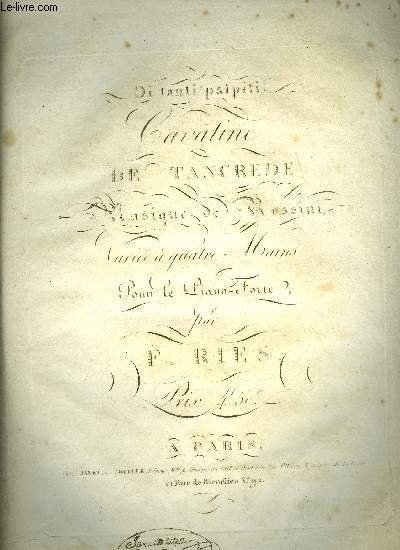 le-livre.com
Di tanti palpiti
Cavatine
DE TANCREDE
Musique de Rossini
Variée à quatre Mains
Pour le Piano-Forte
par
F. RIES
Prix
A PARIS,
JANET et COTELLE
et Rue de Richelieu N.º 92.